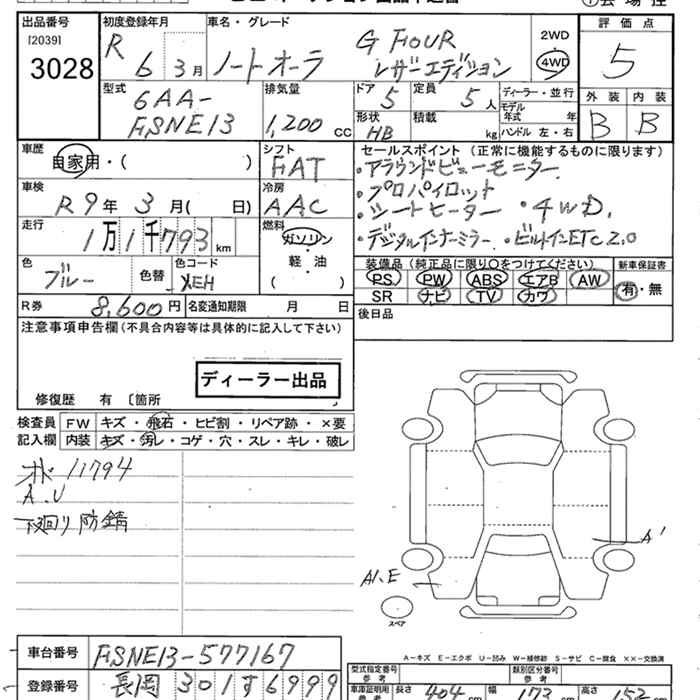 出品番号 初度登録年月 車名・グレード 評価点
[2039] 3028
R 6年 3月 ノートオーラ G FOUR レザーエディション
2WD
4WD
5
型式 排気量 ドア 定員 ディーラー・並行 外装 内装
6AA-
FSNE13 1,200cc 5 5人 モデル年式 年 B B
形状 積載 ハンドル 左・右
HB kg
車歴 シフト セールスポイント (正常に機能するものに限ります)
自家用・( ) FAT ・アラウンドビューモニター
車検 冷房 ・プロパイロット
R9年 3月( 日) AAC ・シートヒーター ・4WD.
走行 燃料 ・デジタルインナーミラー ・ビルトインETC2.0
1万1千793km ガソリン
色 色替 色コード 軽・油 装備品 (純正品に限り○をつけてください) 新車保証書
ブルー XEH ( ) PS PW ABS エアB AW 有・無
SR ナビ TV カワ
R券 8,600円 名変通知期限 月 日 後日品
注意事項申告欄(不具合内容等は具体的に記入して下さい)
ディーラー出品
修復歴 有 〔箇所
検査員 FW キズ・飛石・ヒビ割・リペア跡・×要
記入欄 内装 キズ・汚レ・コゲ・穴・スレ・キレ・破レ
オド 11794
A.U
下廻り防錆
A'
A1.E
スペア
A-キズ E-エクボ U-凹み W-補修跡 S-サビ C-腐食 ××-交換済
車台番号 FSNE13-577167
型式指定番号 参考 類別区分番号 参考
登録番号 長岡 301す6999
車庫証明用 参考 長さ 404cm 幅 173cm 高さ 152cm